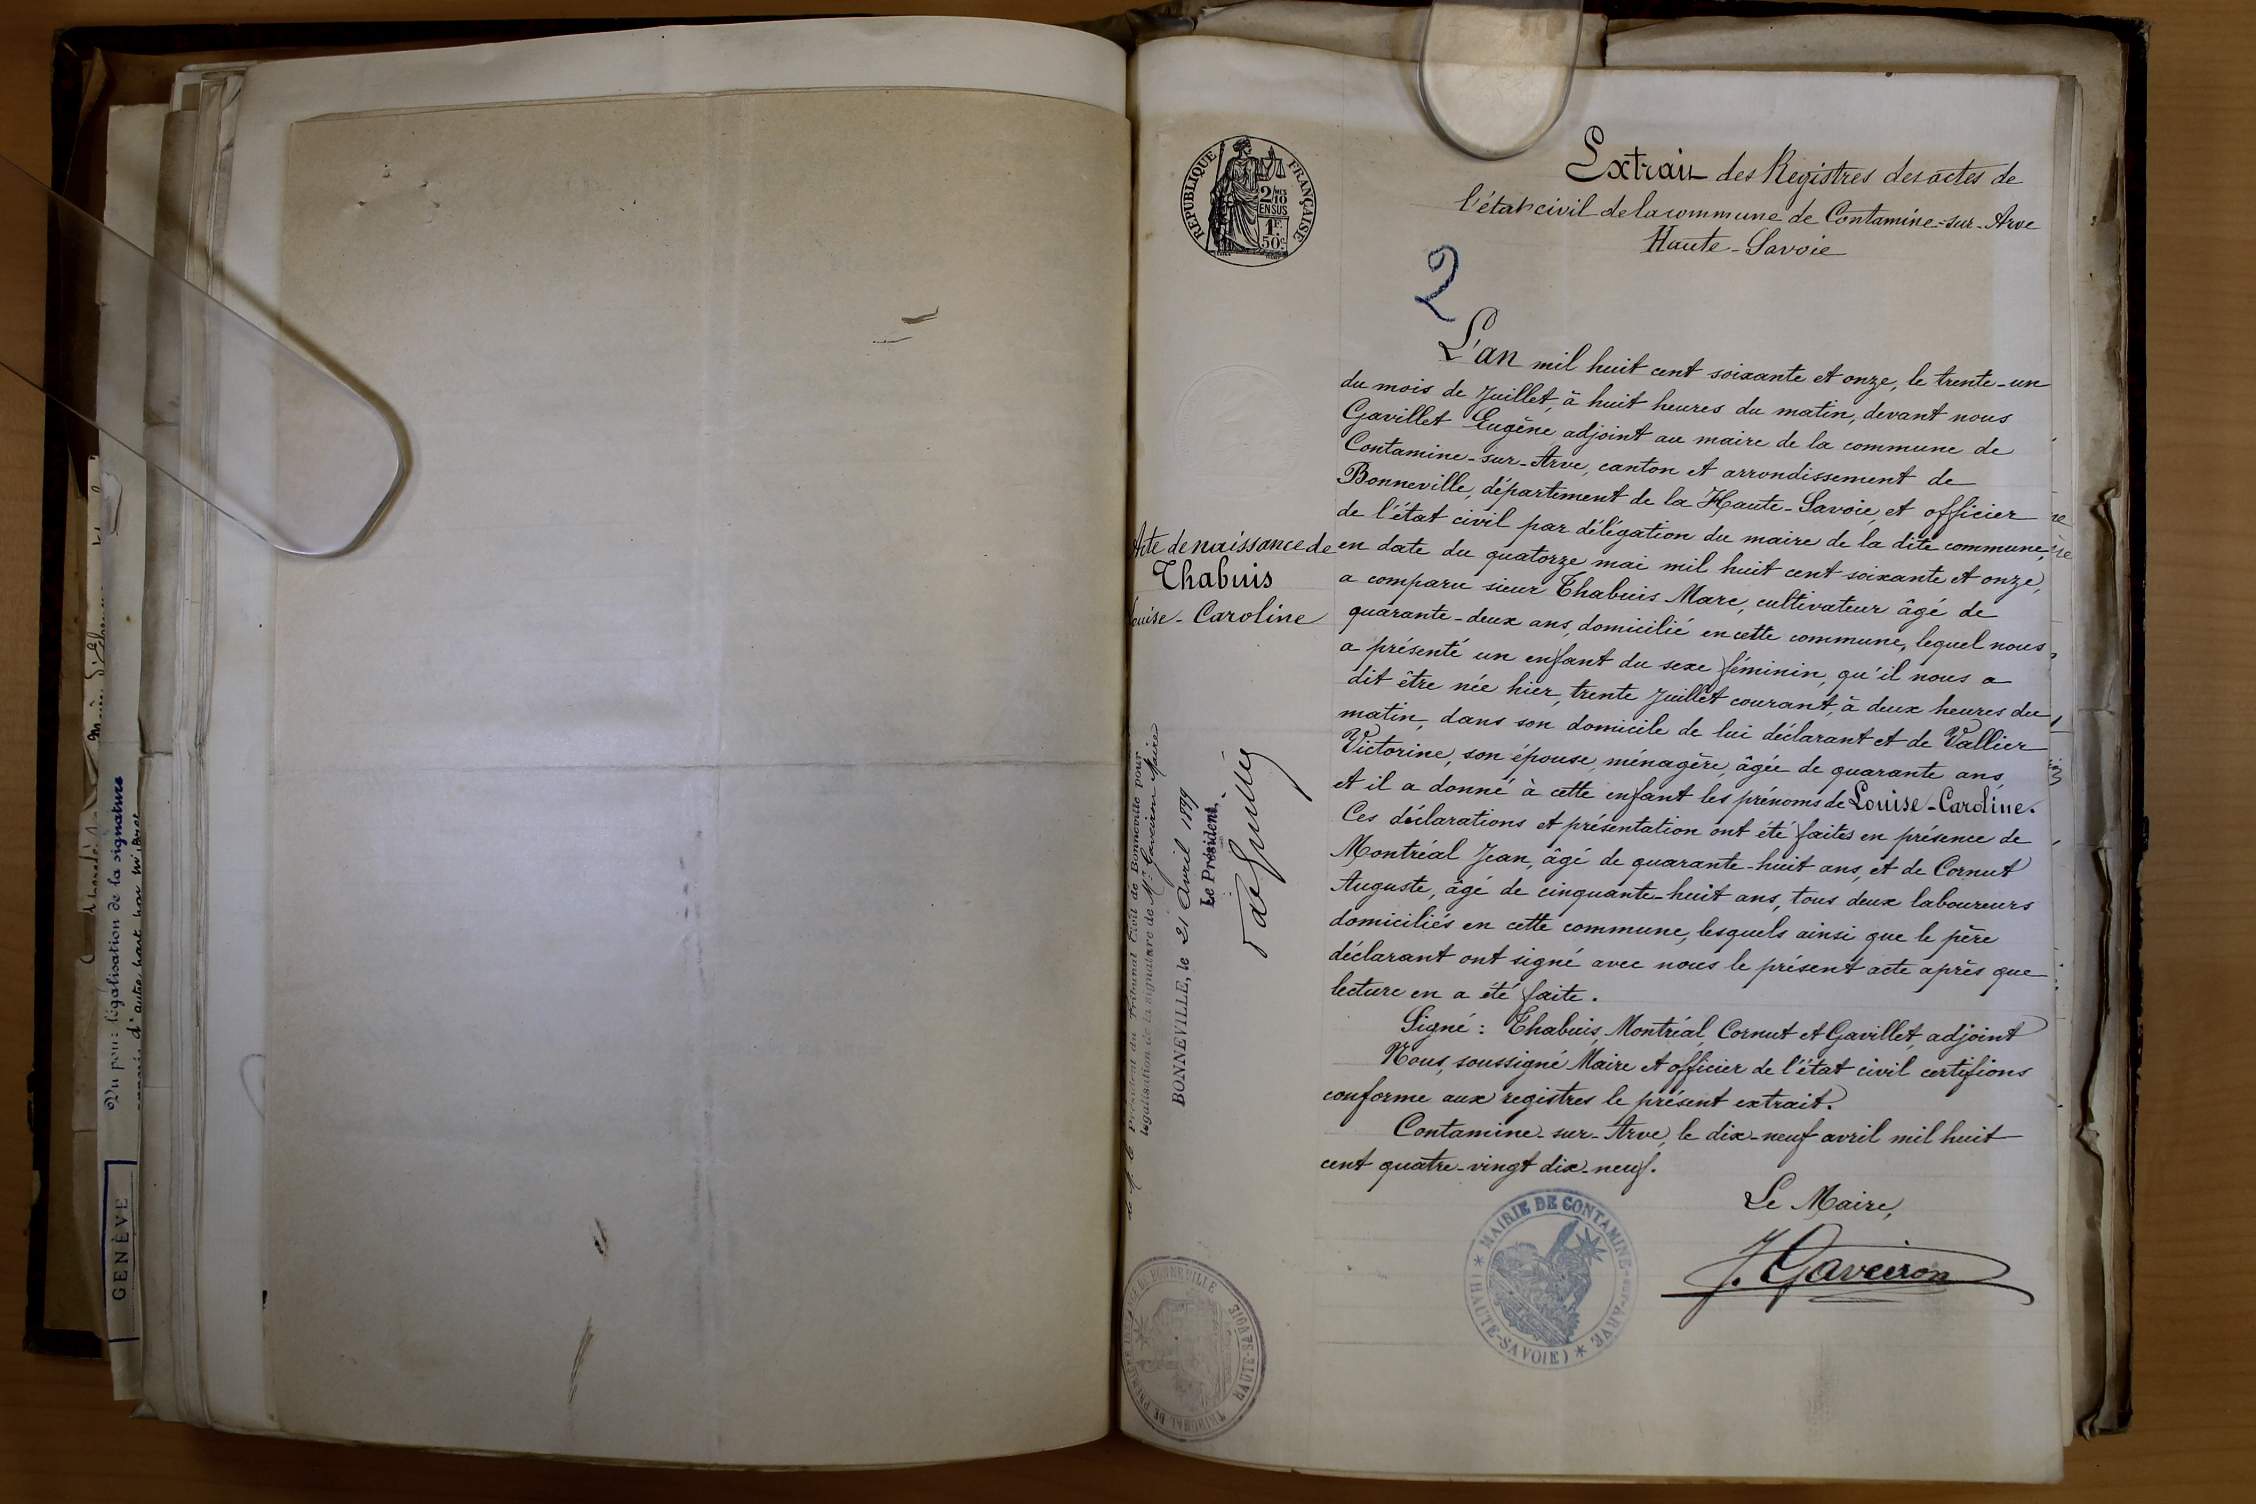 Extrait des Registres des actes de
l'état civil de la commune de Contamine-sur-Arve
Haute-Savoie
RÉPUBLIQUE FRANÇAISE
2/10 MES
EN SUS
1F.
50c.
2
L'an mil huit cent soixante et onze, le trente-un
du mois de Juillet, à huit heures du matin, devant nous
Gavillet Eugène, adjoint au maire de la commune de
Contamine-sur-Arve, canton et arrondissement de
Bonneville, département de la Haute-Savoie, et officier
de l'état civil par délégation du maire de la dite commune,
en date du quatorze mai mil huit cent soixante et onze,
a comparu sieur Thabuis Marc, cultivateur âgé de
quarante-deux ans, domicilié en cette commune, lequel nous
a présenté un enfant du sexe féminin, qu'il nous a
dit être née hier, trente Juillet courant, à deux heures du
matin, dans son domicile de lui déclarant et de Vallier
Victorine, son épouse, ménagère, âgée de quarante ans,
et il a donné à cette enfant les prénoms de Louise-Caroline.
Ces déclarations et présentation ont été faites en présence de
Montréal Jean, âgé de quarante-huit ans, et de Cornut
Auguste, âgé de cinquante-huit ans, tous deux laboureurs
domiciliés en cette commune, lesquels ainsi que le père
déclarant ont signé avec nous le présent acte après que
lecture en a été faite.
Signé : Thabuis, Montréal, Cornut et Gavillet, adjoint
Nous, soussigné Maire et officier de l'état civil certifions
conforme aux registres le présent extrait.
Contamine-sur-Arve, le dix-neuf avril mil huit
cent quatre-vingt dix-neuf.
Le Maire,
J. Gavairon
MAIRIE DE CONTAMINE-SUR-ARVE
(HAUTE-SAVOIE)
Acte de naissance de
Thabuis
Louise-Caroline
Président du Tribunal Civil de Bonneville pour
légalisation de la signature de Mr Gavairon Maire
BONNEVILLE, le 21 Avril 1899
Le Président,
TRIBUNAL DE BONNEVILLE
HAUTE-SAVOIE
Vu pour légalisation de la signature
d'autre part
GENÈVE